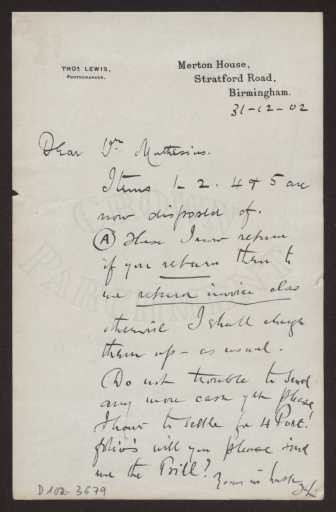 THOS. LEWIS,
PHOTOGRAPHER.
Merton House,
Stratford Road,
Birmingham.
31-12-02
Dear Mr Muthesius.
Items 1-2. 4 & 5 are
now disposed of.
(A) These I now
if you return them to
me return invoice also
otherwise I shall charge
them up - as usual.
Do not trouble to send
any more cash yet please
I have to settle for 4 Port.
folio's will you please send
me the Bill?
Yours in haste
D 102-3679